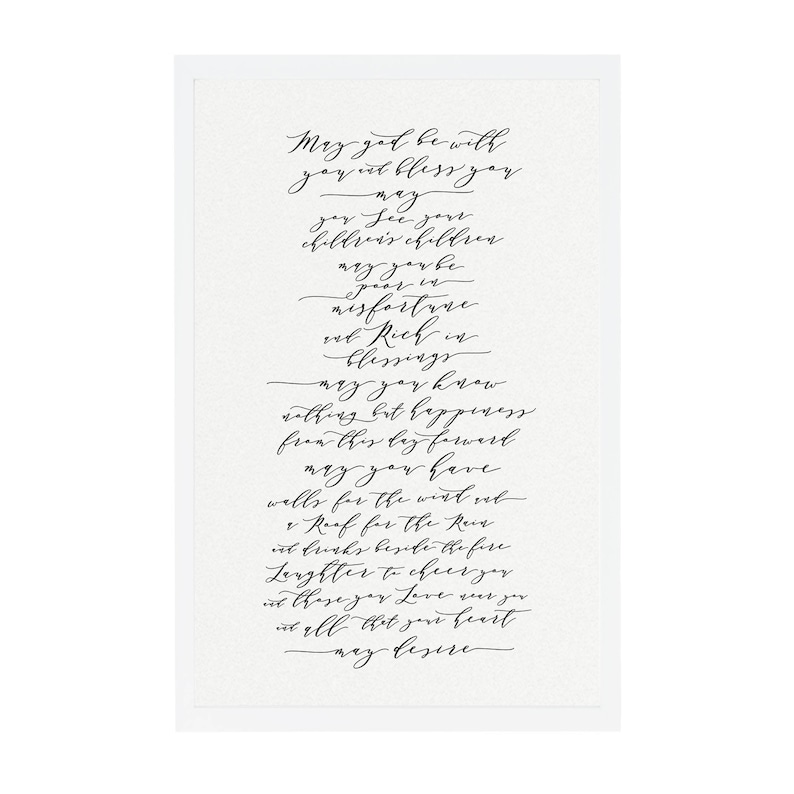 May god be with
you and bless you
may
you See your
children's children
may you be
poor in
misfortune
and Rich in
blessings
may you know
nothing but happiness
from this day forward
may you have
walls for the wind and
a Roof for the Rain
and drinks beside the fire
Laughter to cheer you
and those you Love near you
and all that your heart
may desire